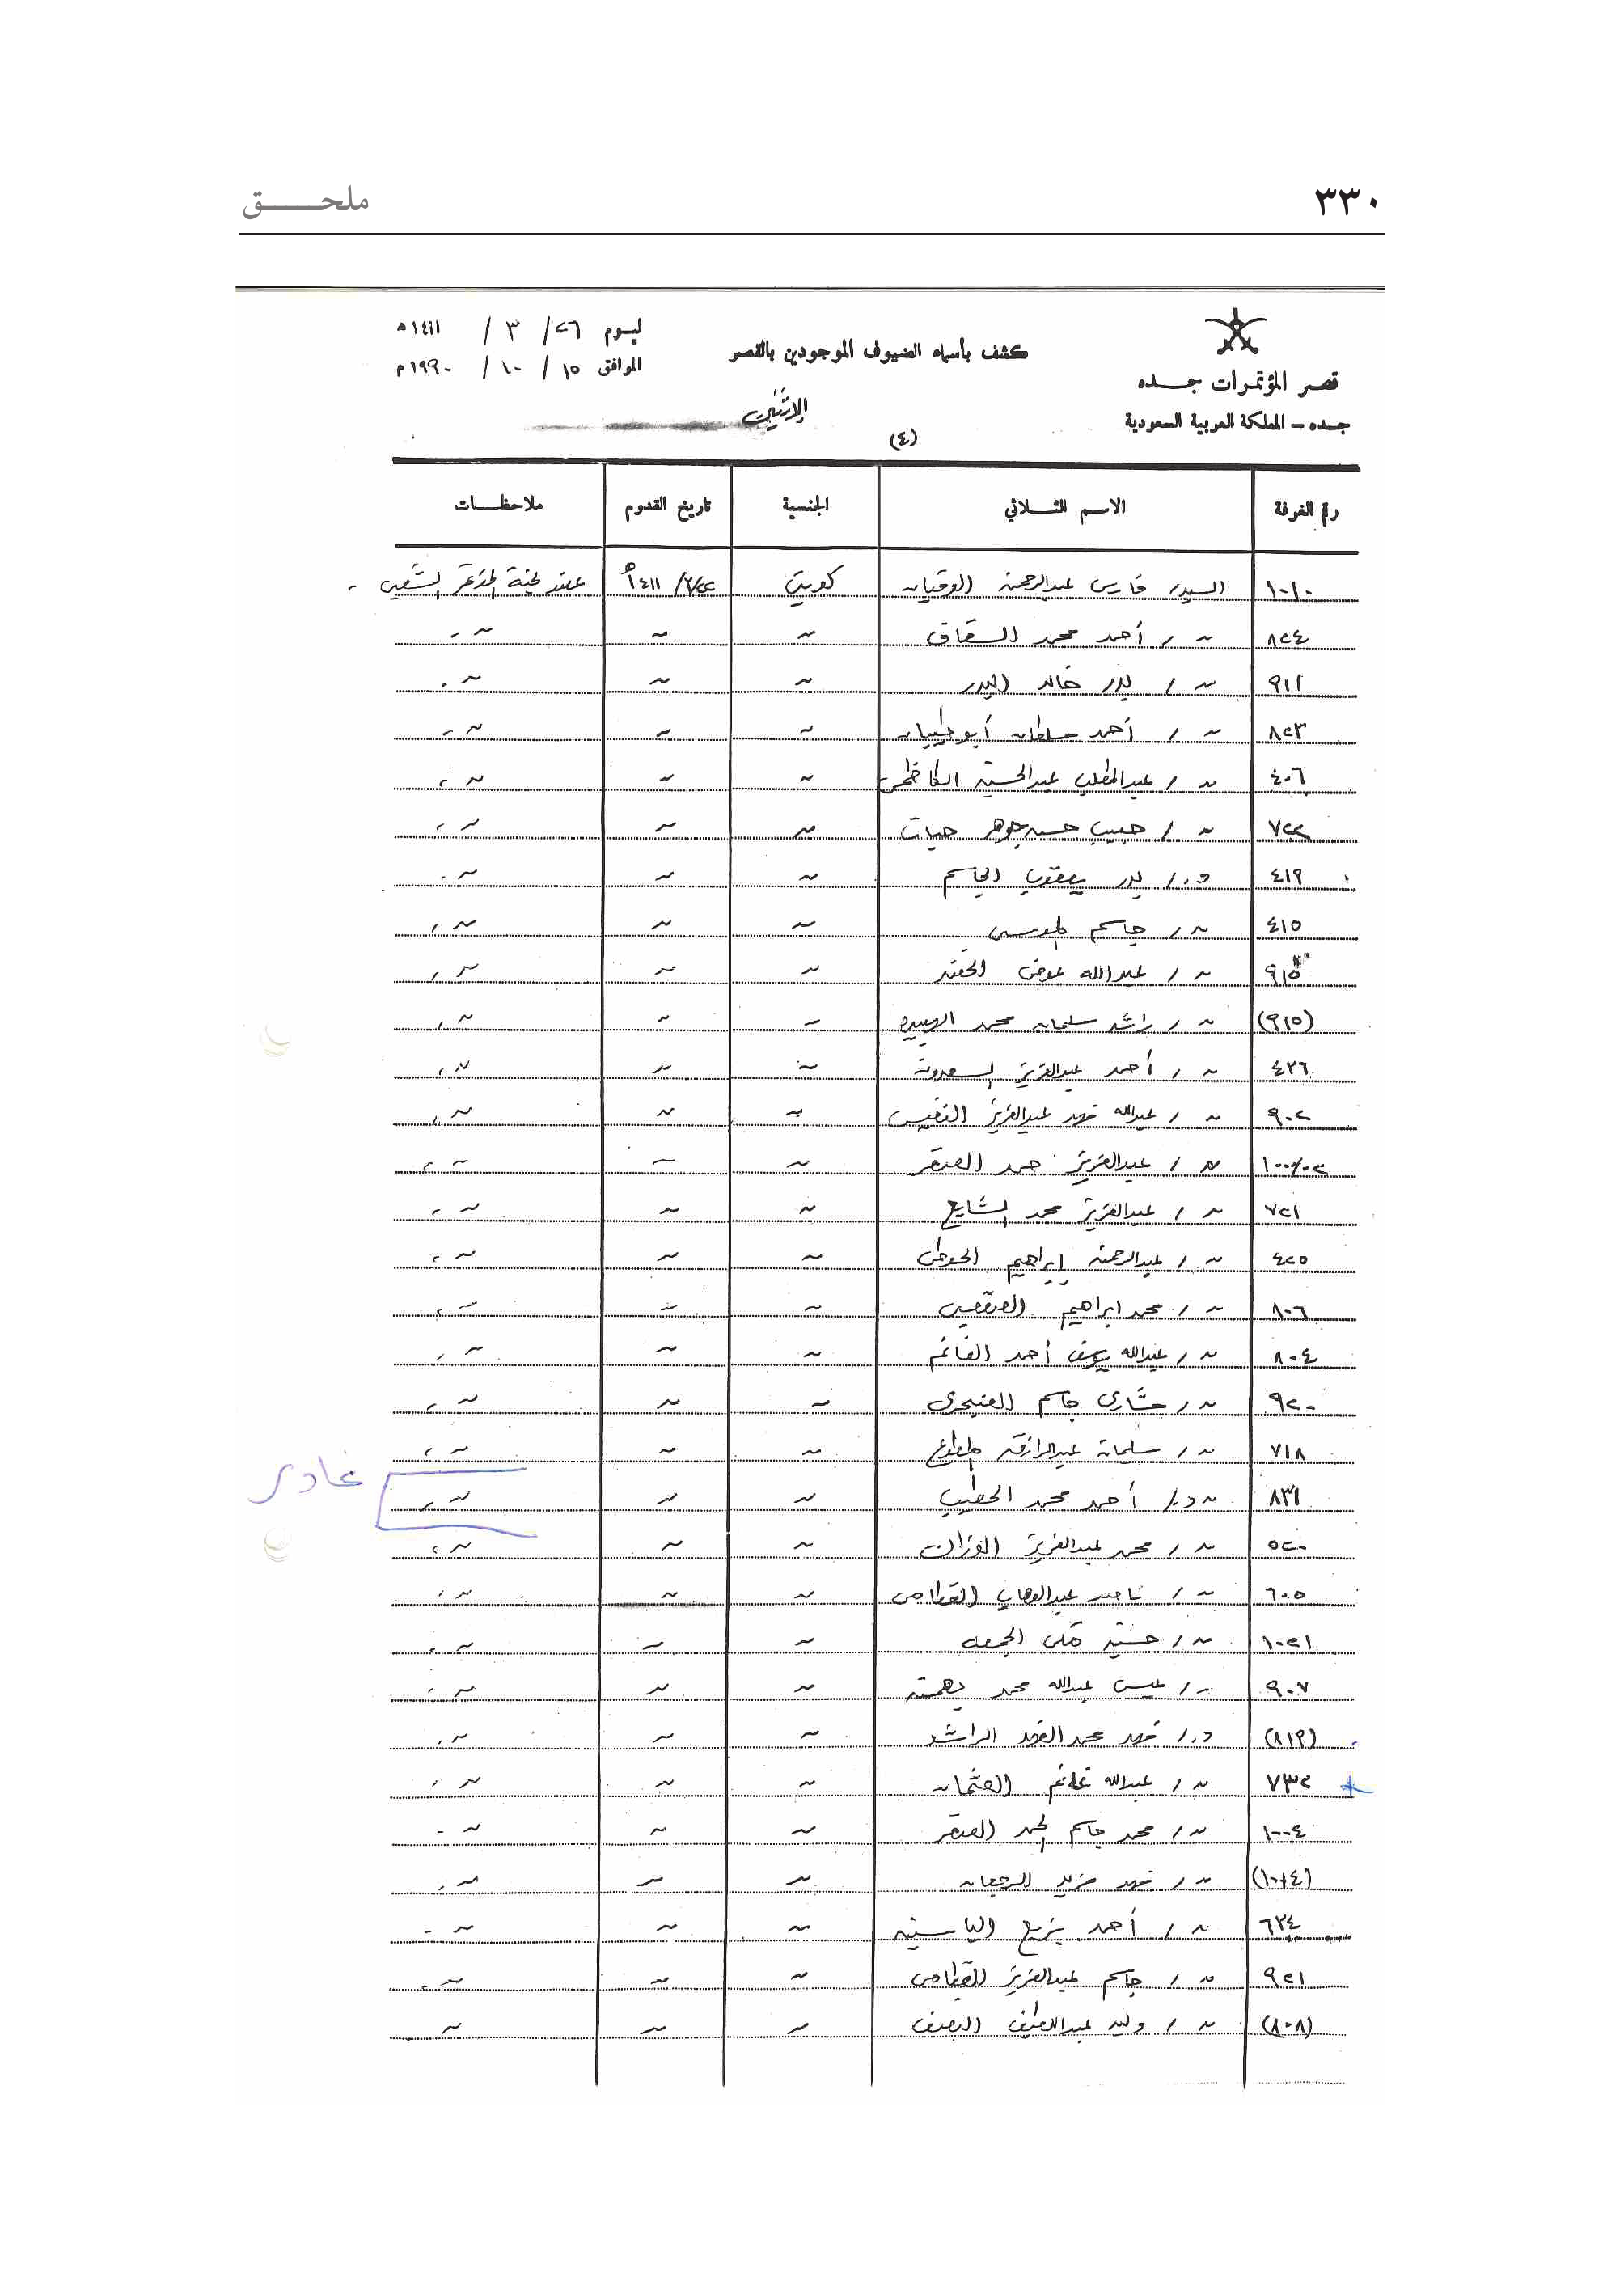 ٣٣٠
ملحـــــق
قصر المؤتمرات جـــده
جـده – المملكة العربية السعودية
كشف بأسماء الضيوف الموجودين بالقصر
ليـوم ٢٦ / ٣ / ١٤١١ ه
الموافق ١٥ / ١٠ / ١٩٩٠ م
الإثنين
(٤)
رقم الغرفة الاسم الثـــلاثي الجنسية تاريخ القدوم ملاحظـــات
١٠١٠ السيد / فارس عبدالرحمن الوقيان كويتي ١٤١١ه عضو لجنة المؤتمر الشعبي -
٨٢٤ ~ / أحمد محمد السقاف ~ ~ ~ -
٩١١ ~ / بدر خالد البدر ~ ~ ~ -
٨٢٣ ~ / أحمد سلطان أبو ~ ~ ~ -
٤٠٦ ~ / عبدالمطلب عبدالحسين الكاظمي ~ ~ ~ ،
٧٢٢ ~ / حبيب حسن جوهر حيات ~ ~ ~ ،
٤١٩ د. / بدر يعقوب الجاسم ~ ~ ~ ،
٤١٥ ~ / جاسم ~ ~ ~ ،
٩١٥ ~ / عبدالله عوض ~ ~ ~ ،
(٩١٥) ~ / راشد سلمان محمد ~ ~ ~ ،
٤٢٦ ~ / أحمد عبدالعزيز السعدون ~ ~ ~ ،
٩٠٢ ~ / عبدالله فهد عبدالعزيز النفيسي ~ ~ ~ ،
~ / عبدالعزيز حمد الصقر ~ ~ ~ ،
٧٢١ ~ / عبدالعزيز محمد الشايع ~ ~ ~ ،
٤٢٥ ~ / عبدالرحمن إبراهيم الحوطي ~ ~ ~ ،
٨٠٦ ~ / محمد ابراهيم ~ ~ ~ ،
٨٠٤ ~ / عبدالله يوسف أحمد الغانم ~ ~ ~ ،
٩٢٠ ~ / مشاري جاسم العنجري ~ ~ ~ ،
٧١٨ ~ / سلمان عبدالرازق المطوع ~ ~ ~ ،
٨٣١ ~ د. / أحمد محمد الخطيب ~ ~ ~ ، غادر
٥٢٠ ~ / محمد عبدالعزيز الوزان ~ ~ ~ ،
٦٠٥ ~ / ناصر عبدالوهاب القطامي ~ ~ ~ ،
١٠٢١ ~ / حسين مكي الجمعه ~ ~ ~ ،
٩٠٧ ~ / عيسى عبدالله محمد بهمن ~ ~ ~ ،
(٨١٩) د. / فهد محمد الراشد ~ ~ ~ ،
٧٣٢ ~ / عبدالله غانم العثمان ~ ~ ~ ،
١٠٠٤ ~ / محمد جاسم الحمد الصقر ~ ~ ~ -
(١٠١٤) ~ / فهد مزيد الرجعان ~ ~ ~ ،
٦٢٤ ~ / أحمد بزيع الياسين ~ ~ ~ -
٩٢١ ~ / جاسم عبدالعزيز القطامي ~ ~ ~ ،
(٨٠٨) ~ / وليد عبداللطيف النصف ~ ~ ~